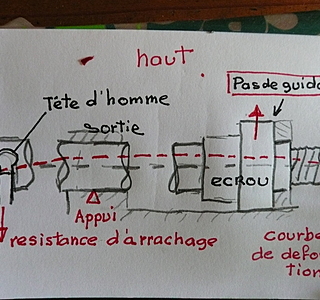 haut
Pas de guida
Tête d'homme
sortie
ECROU
Appui
resistance d'arrachage
courbe
de defo
tion